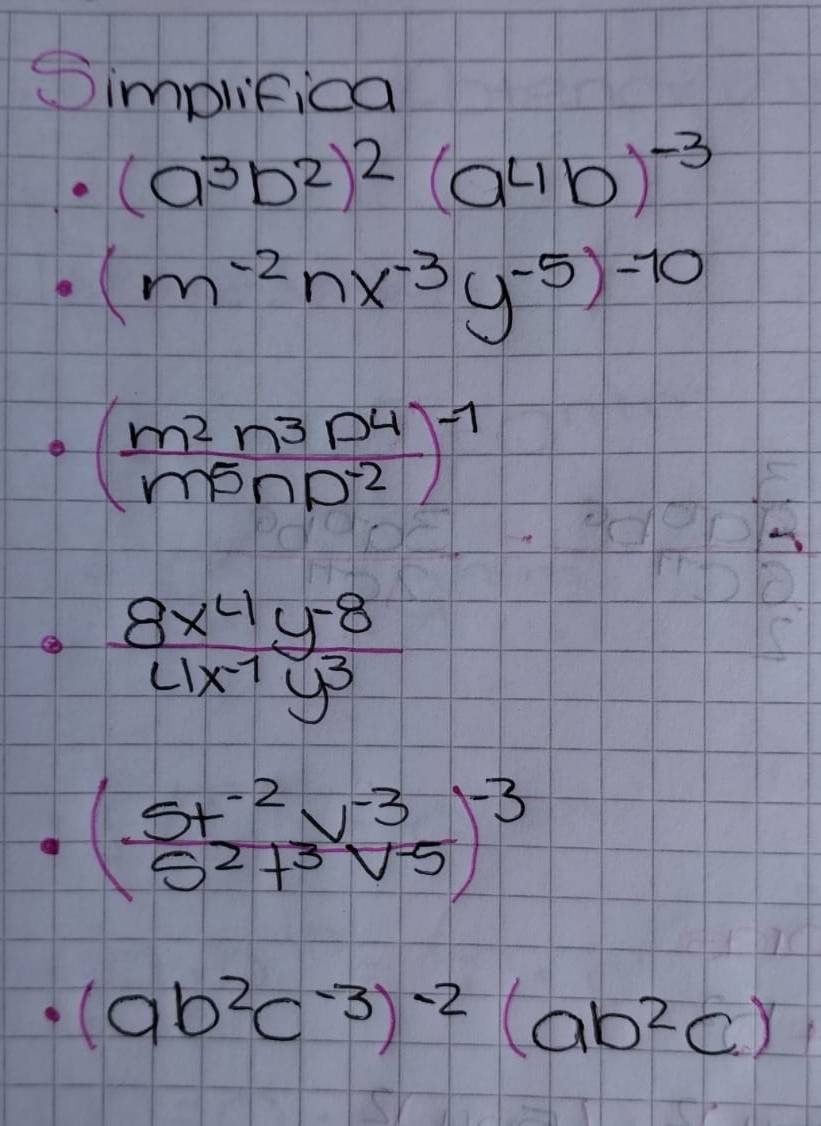 Simplifica
• (a³b²)² (a⁴b)⁻³
• (m⁻²nx⁻³y⁻⁵)⁻¹⁰
• (m²n³p⁴ / m⁵np⁻²)⁻¹
• 8x⁴y⁻⁸ / 4x⁻¹y³
• (st⁻²v⁻³ / s²t³v⁻⁵)⁻³
• (ab²c⁻³)⁻² (ab²c)